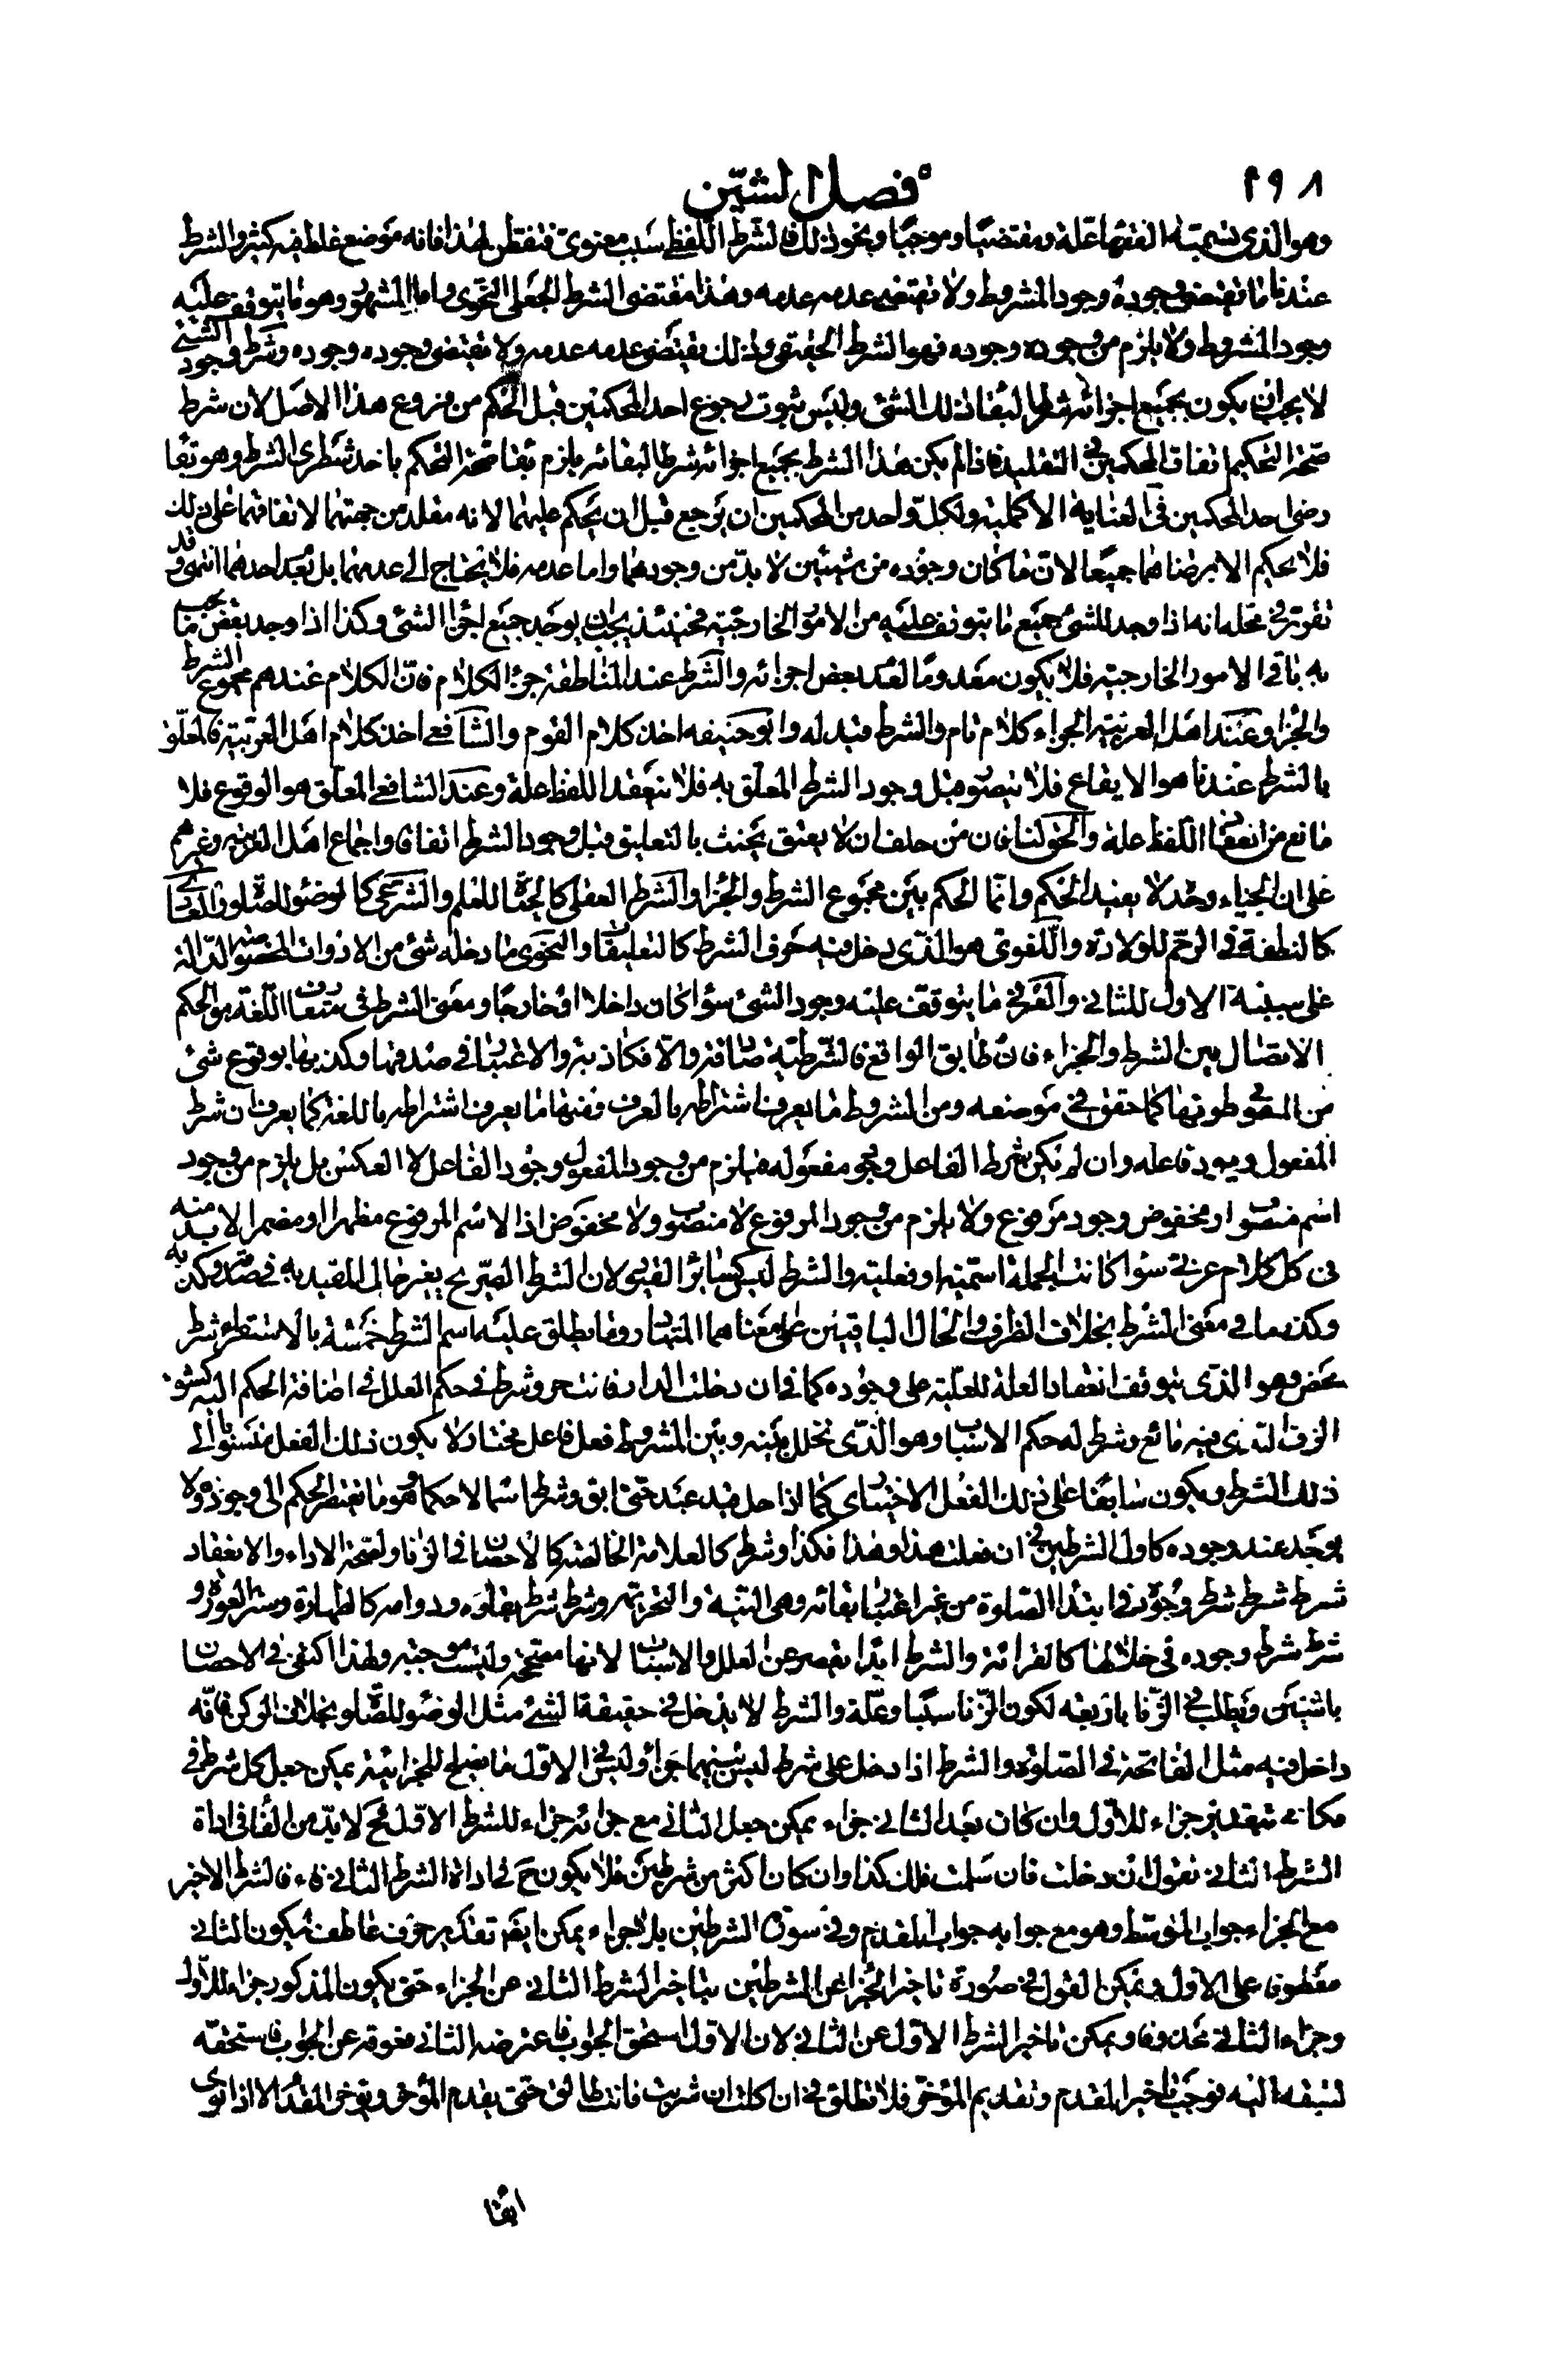 ٢٩٨ فصل الشين
وهو الذى تسميته الفقهاء علة ومقتضيا وموجبا ونحو ذلك فالشرط اللفظى سبب معنوى فتفطن لهذا فانه موضع غلط فيه كثير والشرط
عندنا ما يقتضى وجوده وجود المشروط ولا يقتضى عدمه عدمه وهذا مقتضى الشرط الجعلى النحوى واما المشهور وهو ما يتوقف عليه
وجود المشروط ولا يلزم من وجوده وجوده فهو الشرط الحقيقى ولذلك يقتضى عدمه عدمه ولا يقتضى وجوده وجوده وشرط وجود الشئ
لا يجب ان يكون بجميع اجزائه شرطا لبقاء ذلك الشئ وليس ثبوت رجوع احد المحكمين قبل الحكم من فروع هذا الاصل لان شرط
صحة التحكيم اتفاق المحكمين فى التقليد فاذا لم يكن هذا الشرط بجميع اجزائه شرطا لبقائه يلزم بقاء صحة التحكم باحد شطرى الشرط وهو بقاء
رضى احد المحكمين فى العناية الاكملية ولكل واحد من المحكمين ان يرجع قبل ان يحكم عليهما لانه مقلد من جهتهما لاتفاقهما على ذلك
فلا يحكم الا برضاهما جميعا لان ما كان وجوده من شيئين لا بد من وجودهما واما عدمه فلا يحتاج الى عدمهما بل بعدم احدهما انتهى وقد
تقرر فى محله انه اذا وجد للشئ جميع ما يتوقف عليه من الامور الخارجية فحينئذ يجب ان يوجد جميع اجزاء الشئ وكذا اذا وجد بعض ما يجب
به باقى الامور الخارجية فلا يكون معدوما لعدم بعض اجزائه والشرط عند المناطقة جزء الكلام فان الكلام عندهم مجموع الشرط
والجزاء وعند اهل العربية الجزاء كلام تام والشرط قيد له وابو حنيفه اخذ كلام القوم والشافعى اخذ كلام اهل العربية فالمعلق
بالشرط عندنا هو الايقاع فلا يتصور قبل وجود الشرط المعلق به فلا ينعقد اللفظ علة وعند الشافعى المعلق هو الوقوع فلا
مانع من انعقاد اللفظ علة والحق لنا فان من حلف ان لا يعتق يحنث بالتعليق قبل وجود الشرط اتفاقا واجماع اهل العربية وغيرهم
على ان الجزاء وحده لا يفيد الحكم وانما الحكم بين مجموع الشرط والجزاء والشرط العقلى كالحياة للعلم والشرعى كالوضوء للصلوة والعادى
كالنطفة فى الرحم للولادة واللغوى هو الذى دخل فيه حرف الشرط كالتعليقات والنحوى ما دخله شئ من الادوات المخصوصة الدالة
على سببية الاول للثانى والعرفى ما يتوقف عليه وجود الشئ سواء كان داخلا او خارجا ومعنى الشرط فى متعارف اللغة هو الحكم
الاتصال بين الشرط والجزاء فان طابق الواقع فالشرطية صادقة والا فكاذبة والاعتبار فى صدقها وكذبها بوقوع شئ
من المقدم وطويتها كما حقق فى موضعه ومن الشروط ما يعرف اشتراطه بالعرف ومنها ما يعرف اشتراطه باللغة كما يعرف ان شرط
المفعول وجود فاعله وان لم يكن شرط الفاعل وجود مفعوله فيلزم من وجود المفعول وجود الفاعل لا العكس بل يلزم من وجود
اسم منصوب او مخفوض وجود مرفوع ولا يلزم من وجود المرفوع لا منصوب ولا مخفوض اذ الاسم المرفوع مظهرا او مضمرا لا بد منه
فى كل كلام عربى سواء كانت الجملة اسمية او فعلية والشرط ليس كسائر القيود لان الشرط الصريح يغير حال المقيد به فى صدقه وكذبه
وكذا ما فى معنى الشرط بخلاف الظرف والحال الباقيين على معناهما المتبادر وما يطلق عليه اسم الشرط خمسة بالاستقراء شرط
محض وهو الذى يتوقف انعقاد العلة للعلية على وجوده كما فى ان دخلت الدار فانت حر وشرط فى حكم العلل فى اضافة الحكم اليه كشق
الزق الذى فيه مائع وشرط له حكم الاسباب وهو الذى تخلل بينه وبين المشروط فعل فاعل مختار لا يكون ذلك الفعل منسوبا الى
ذلك الشرط ويكون سابقا على ذلك الفعل الاختيارى كما اذا حل قيد عبد حتى ابق وشرط اسما لا حكما وهو ما يفتقر الحكم الى وجوده ولا
يوجد عند وجوده كاول الشرطين فى ان فعلت هذا وهذا فكذا وشرط كالعلامة الخالصة كالاحصان فى الزنا ولصحة الاداء والانعقاد
شرط شرط شرط وجوده فى ابتداء الصلوة من غير اعتبار بقائه وهى النية والتحريمة وشرط شرط بقاؤه ودوامه كالطهارة وستر العورة و
شرط شرط وجوده فى خلالها كالقراءة والشرط ابدا يقصر عن العلل والاسباب لانها مصححة وليست موجبة ولهذا اكتفى فى الاحصان
باثنين وطلب فى الزنا باربعة لكون الزنا سببا وعلة والشرط لا يدخل فى حقيقة الشئ مثل الوضوء للصلوة بخلاف الركن فانه
داخل فيه مثل الفاتحة فى الصلوة والشرط اذا دخل على شرط ليس بينهما جزاء وليس فى الاول ما يصلح للجزائية يمكن جعل كل شرط فى
مكانه بتقدير جزاء للاول وان كان بعد الثانى جزاء يمكن جعل الثانى مع جزائه جزاء للشرط الاول فح لا بد من الفاء فى اداة
الشرط الثانى تقول ان دخلت فان سلمت فلك كذا وان كان اكثر من شرطين فلا يكون ح فى اداة الشرط الثانى فاء فالشرط الاخير
مع الجزاء جواب المتوسط وهو مع جوابه جواب المقدم وفى سوق الشرطين بلا جزاء يمكن ايضا تقدير حرف عاطف فيكون الثانى
معطوفا على الاول ويمكن القول فى صورة تاخير الجزاء عن الشرطين بتاخير الشرط الثانى عن الجزاء حتى يكون المذكور جزاء للاول
وجزاء الثانى محذوفا ويمكن تاخير الشرط الاول عن الثانى لان الاول استحق الجواب فاعترضه الثانى فعوقه عن الجواب فاستحقه
لسبقه اليه فوجب تاخير المقدم وتقديم المؤخر فلا تطلق فى ان اكلت ان شربت فانت طالق حتى يقدم المؤخر ويؤخر المقدم الا اذا نوى
ابقا